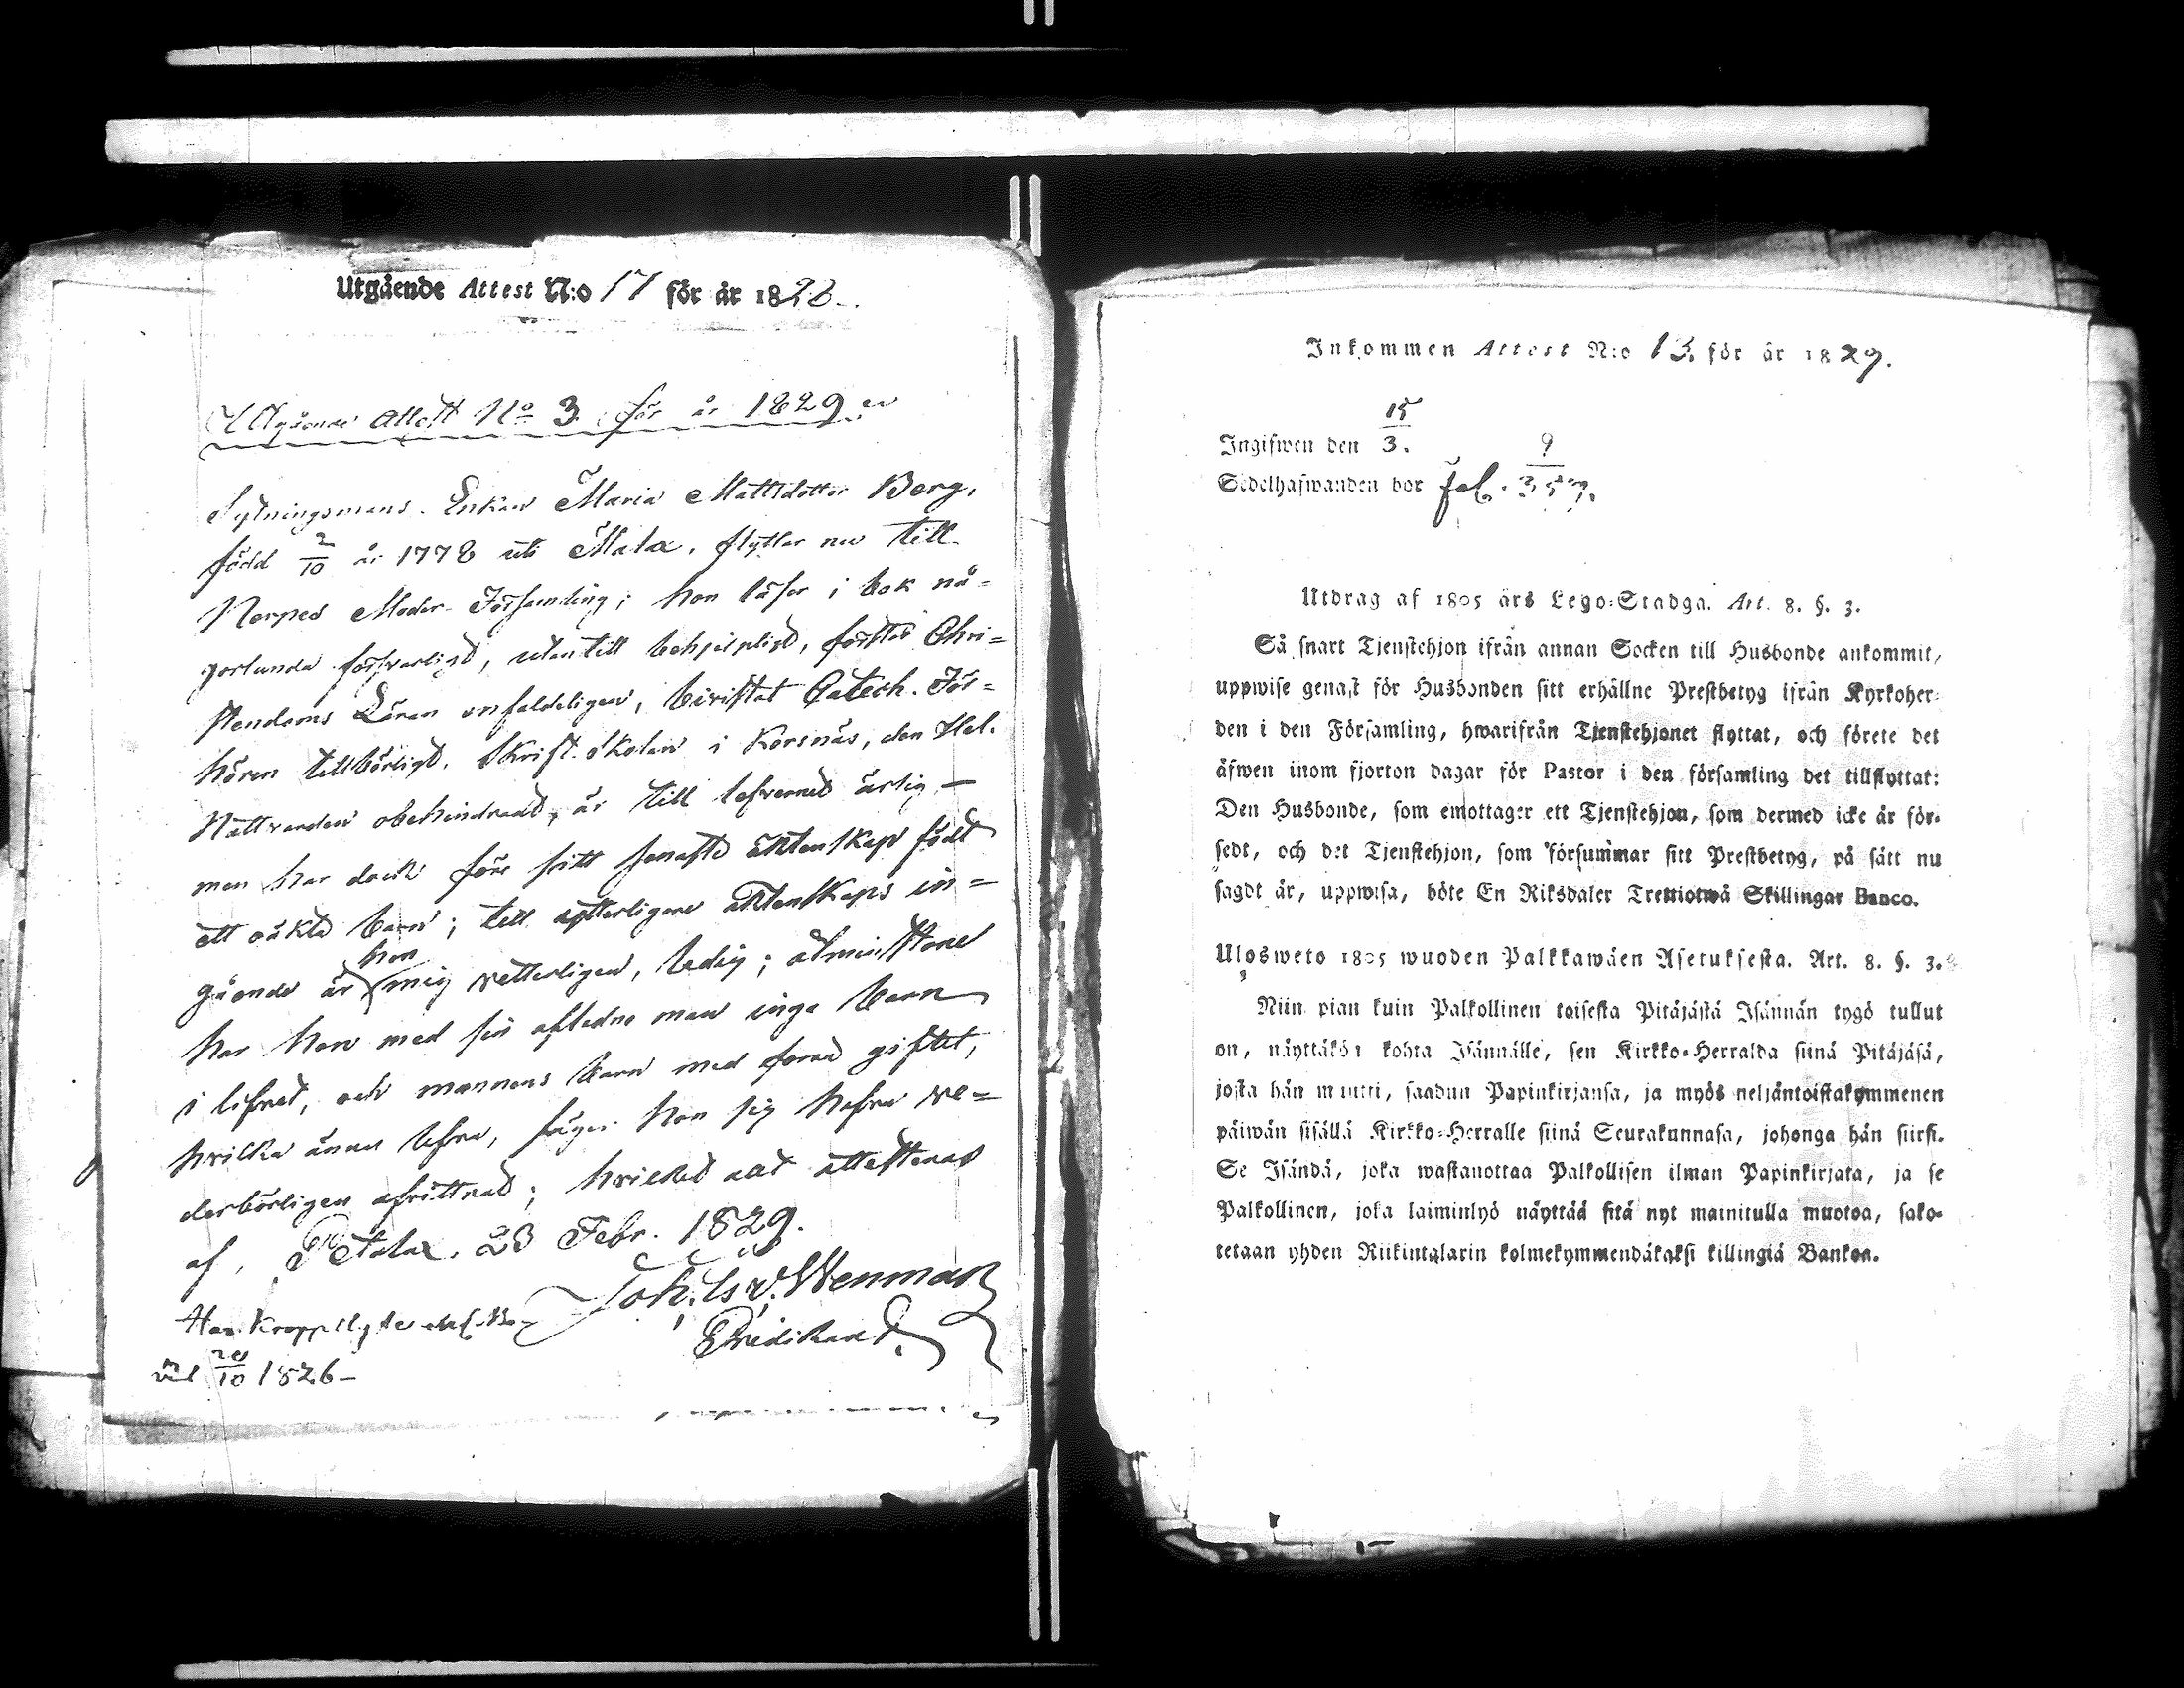 Utgående Attest N:o 17 för år 1828.
Utgående Attest No 3 för år 1829
Sytningsmans Enkan Maria Mattsdotter Berg,
född 2/10 år 1778 uti Malax, flyttar nu till
Nerpes Moder-Församling; hon läser i bok nå-
gorlunda försvarligt, utantill behjelpligt, förstår Chri-
stendoms Läran enfaldeligen, bivistat Catech. För-
hören tillbörligt, Skrift-skolan i Korsnäs, den Hel.
Nattvarden obehindrad, är till lefvernet ärlig —
men har dock före sitt senaste äktenskap födt
ett oäkta barn; till ytterligare äktenskaps in-
gående är hon mig vetterligen, ledig; åtminstone
har hon med sin aflednа man inga barn
i lifvet, och mannens barn med förra giftet,
hvilka ännu lefva, säger hon sig hafva ve-
derbörligen afvittrat; hvilket allt attesteras
af, Petalax, 23 Febr. 1829.
Joh. Is. Wenman
Predikant.
Har Kroppslyte
20/10 1826 —
Inkommen Attest N:o 13. för år 1829.
Ingifwen den 15/3.
Sedelhafwanden bor fol. 9/357.
Utdrag af 1805 års Lego-Stadga. Art. 8. §. 3.
Så snart Tjenstehjon ifrån annan Socken till Husbonde ankommit,
uppwise genast för Husbonden sitt erhållne Prestbetyg ifrån Kyrkoher-
den i den Församling, hwarifrån Tjenstehjonet flyttat, och förete det
äfwen inom fjorton dagar för Pastor i den församling det tillflyttat:
Den Husbonde, som emottager ett Tjenstehjon, som dermed icke är för-
sedt, och det Tjenstehjon, som försummar sitt Prestbetyg, på sätt nu
sagdt är, uppwisa, böte En Riksdaler Trettiotwå Skillingar Banco.
Ulosweto 1805 wuoden Palkkawäen Asetuksesta. Art. 8. §. 3.
Niin pian kuin Palkollinen toisesta Pitäjästä Isännän tygö tullut
on, näyttäkön kohta Isännälle, sen Kirkko-Herralda siinä Pitäjäsä,
josta hän muutti, saadun Papinkirjansa, ja myös neljäntoistakymmenen
päiwän sisällä Kirkko-Herralle siinä Seurakunnasa, johonga hän siirsi.
Se Isändä, joka wastanottaa Palkollisen ilman Papinkirjata, ja se
Palkollinen, joka laiminlyö näyttää sitä nyt mainitulla muotoa, sako-
tetaan yhden Riikintalarin kolmekymmendäkaksi killingiä Bankoa.